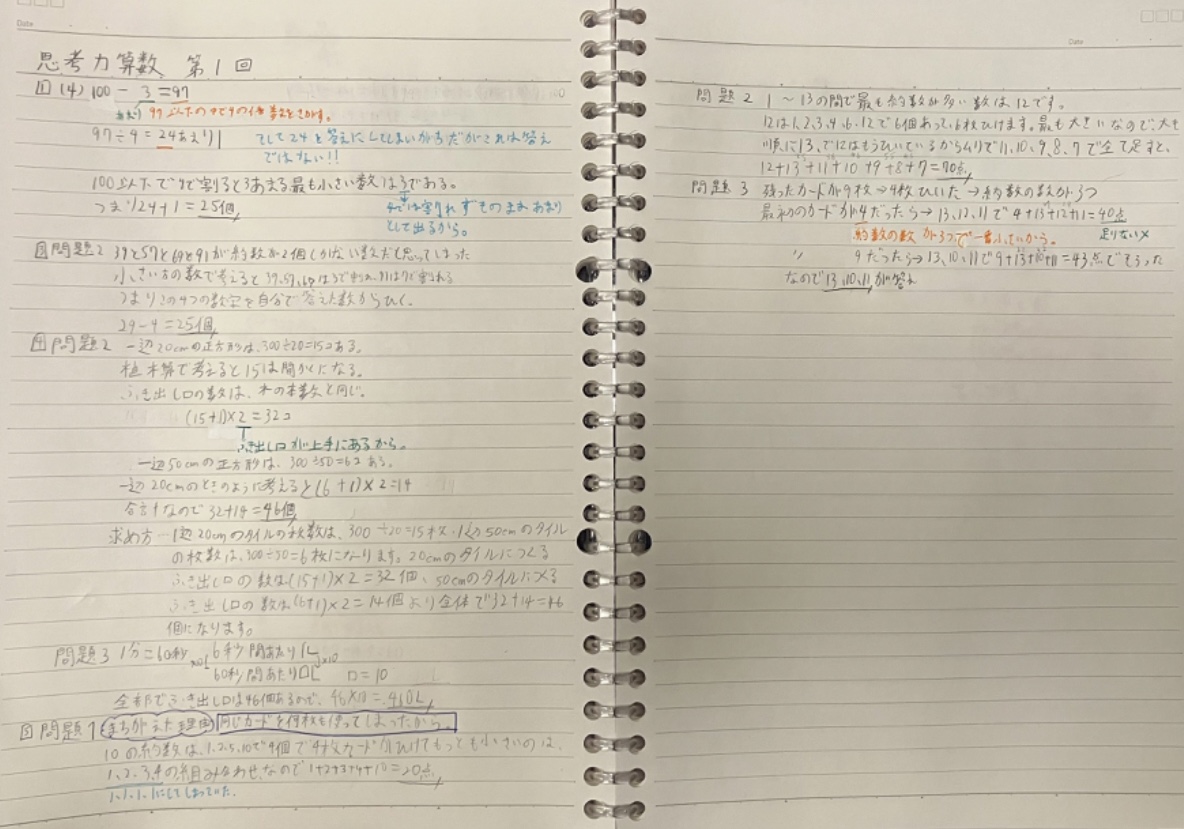 Date
思考力算数 第1回
1 (4) 100 - 3 = 97
あまり 97以下の中で4の倍数をさがす。
97÷4=24あまり1 そして24と答えにしてしまいがちだがこれは答え
ではない!!
100以下で4で割ると3あまる最も小さい数は3である。
つまり24+1=25個 4では割れずそのままあまり
として出るから。
問題2 39と57と69と91が約数が2個しかない数だと思ってしまった
小さい方の数で考えると39,57,69は3で割れ、91は7で割れる
つまりこの4つの数字を自分で答えた数からひく。
29-4=25個
4 問題2 一辺20cmの正方形は、300÷20=15コある。
植木算で考えると15は間かくになる。
ふき出し口の数は、木の本数と同じ。
(15+1)×2=32コ
ふき出し口が上下にあるから。
一辺50cmの正方形は、300÷50=6コある。
一辺20cmのときのように考えると(6+1)×2=14
合計なので32+14=46個
求め方…1辺20cmのタイルの枚数は、300÷20=15枚、1辺50cmのタイル
の枚数は、300÷50=6枚になります。20cmのタイルにつくる
ふき出し口の数は(15+1)×2=32個、50cmのタイルにつくる
ふき出し口の数は(6+1)×2=14個より全体で32+14=46
個になります。
問題3 1分=60秒 ×10 6秒間あたり1L ×10
60秒間あたり□L □=10
全部でふき出し口は46個あるので、46×10=460L
問題1 まちがえた理由 同じカードを何枚も使ってしまったから。
10の約数は、1,2,5,10で4個で4枚カードがひけてもっとも小さいのは、
1,2,3,4の組み合わせなので1+2+3+4+10=20点
1,1,1,1にしてしまっていた。
Date
問題2 1~13の間で最も約数が多い数は12です。
12は1,2,3,4,6,12で6個あって、6枚ひけます。最も大きいなので、大きい
順に13、で12はもうひいているからムリで11,10,9,8,7で全て足すと、
12+13+11+10+9+8+7=70点
問題3 残ったカードが9枚→4枚ひいた→約数の数が3つ
最初のカードが4だったら→13,12,11で4+13+12+11=40点
約数の数が3つで一番小さいから。 足りない×
〃 9だったら→13,10,11で9+13+10+11=43点でそろった
なので13,10,11が答え